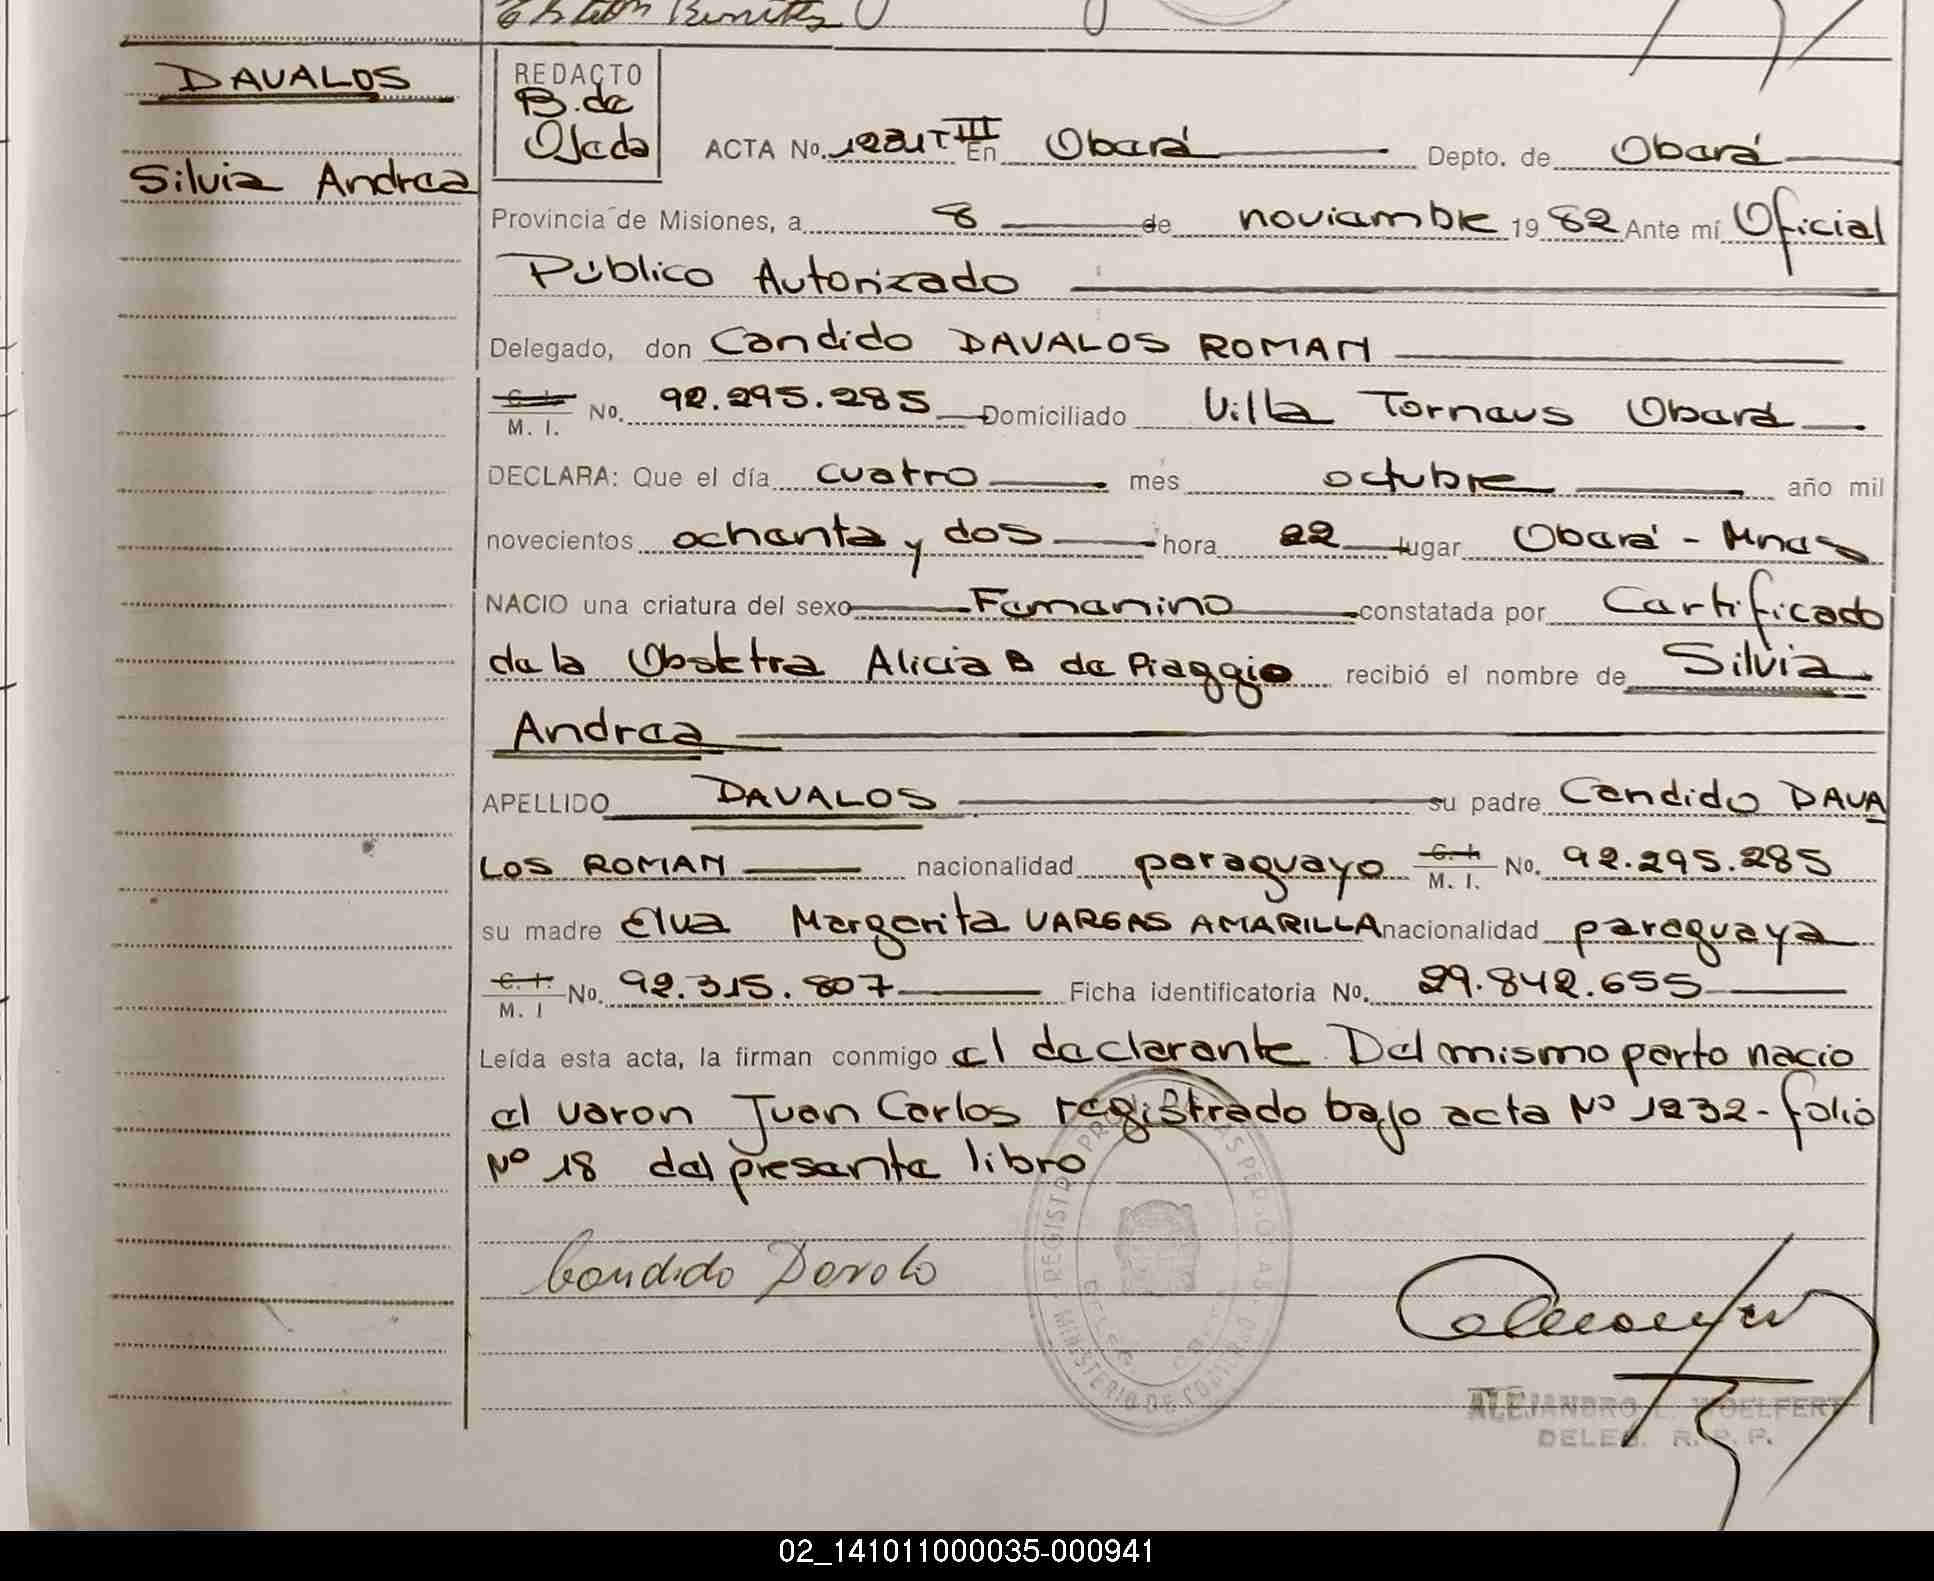 DAVALOS
Silvia Andrea
REDACTO
B. de
Ojeda
ACTA No. 1231 T III En Oberá Depto. de Oberá
Provincia de Misiones, a 8 de noviembre 1982 Ante mí Oficial
Público Autorizado
Delegado, don Candido DAVALOS ROMAN
C. I. M. I. No. 92.295.285 Domiciliado Villa Tornaus Oberá
DECLARA: Que el día cuatro mes octubre año mil
novecientos ochenta y dos hora 22 lugar Oberá - Mnes
NACIO una criatura del sexo Femenino constatada por Certificado
de la Obstetra Alicia B de Piaggio recibió el nombre de Silvia
Andrea
APELLIDO DAVALOS su padre Candido DAVA
LOS ROMAN nacionalidad paraguayo C. I. M. I. No. 92.295.285
su madre Elva Margarita VARGAS AMARILLA nacionalidad paraguaya
C. I. M. I No. 92.315.807 Ficha identificatoria No. 29.842.655
Leída esta acta, la firman conmigo el declarante. Del mismo parto nacio
el varon Juan Carlos registrado bajo acta Nº 1232 - folio
Nº 18 del presente libro
Candido Davalo
ALEJANDRO L. WOELFERT
DELEG. R. P. P.
02_141011000035-000941